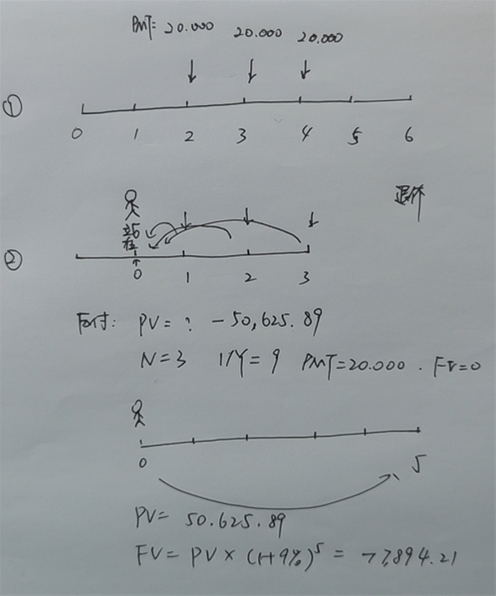 PMT: 20.000 20.000 20.000
①
0 1 2 3 4 5 6
站
在
②
0 1 2 3
后付: PV = ? -50,625.89
N=3 I/Y=9 PMT=20.000. FV=0
0 5
PV= 50.625.89
FV= PV × (1+9%)⁵ = 77,894.21